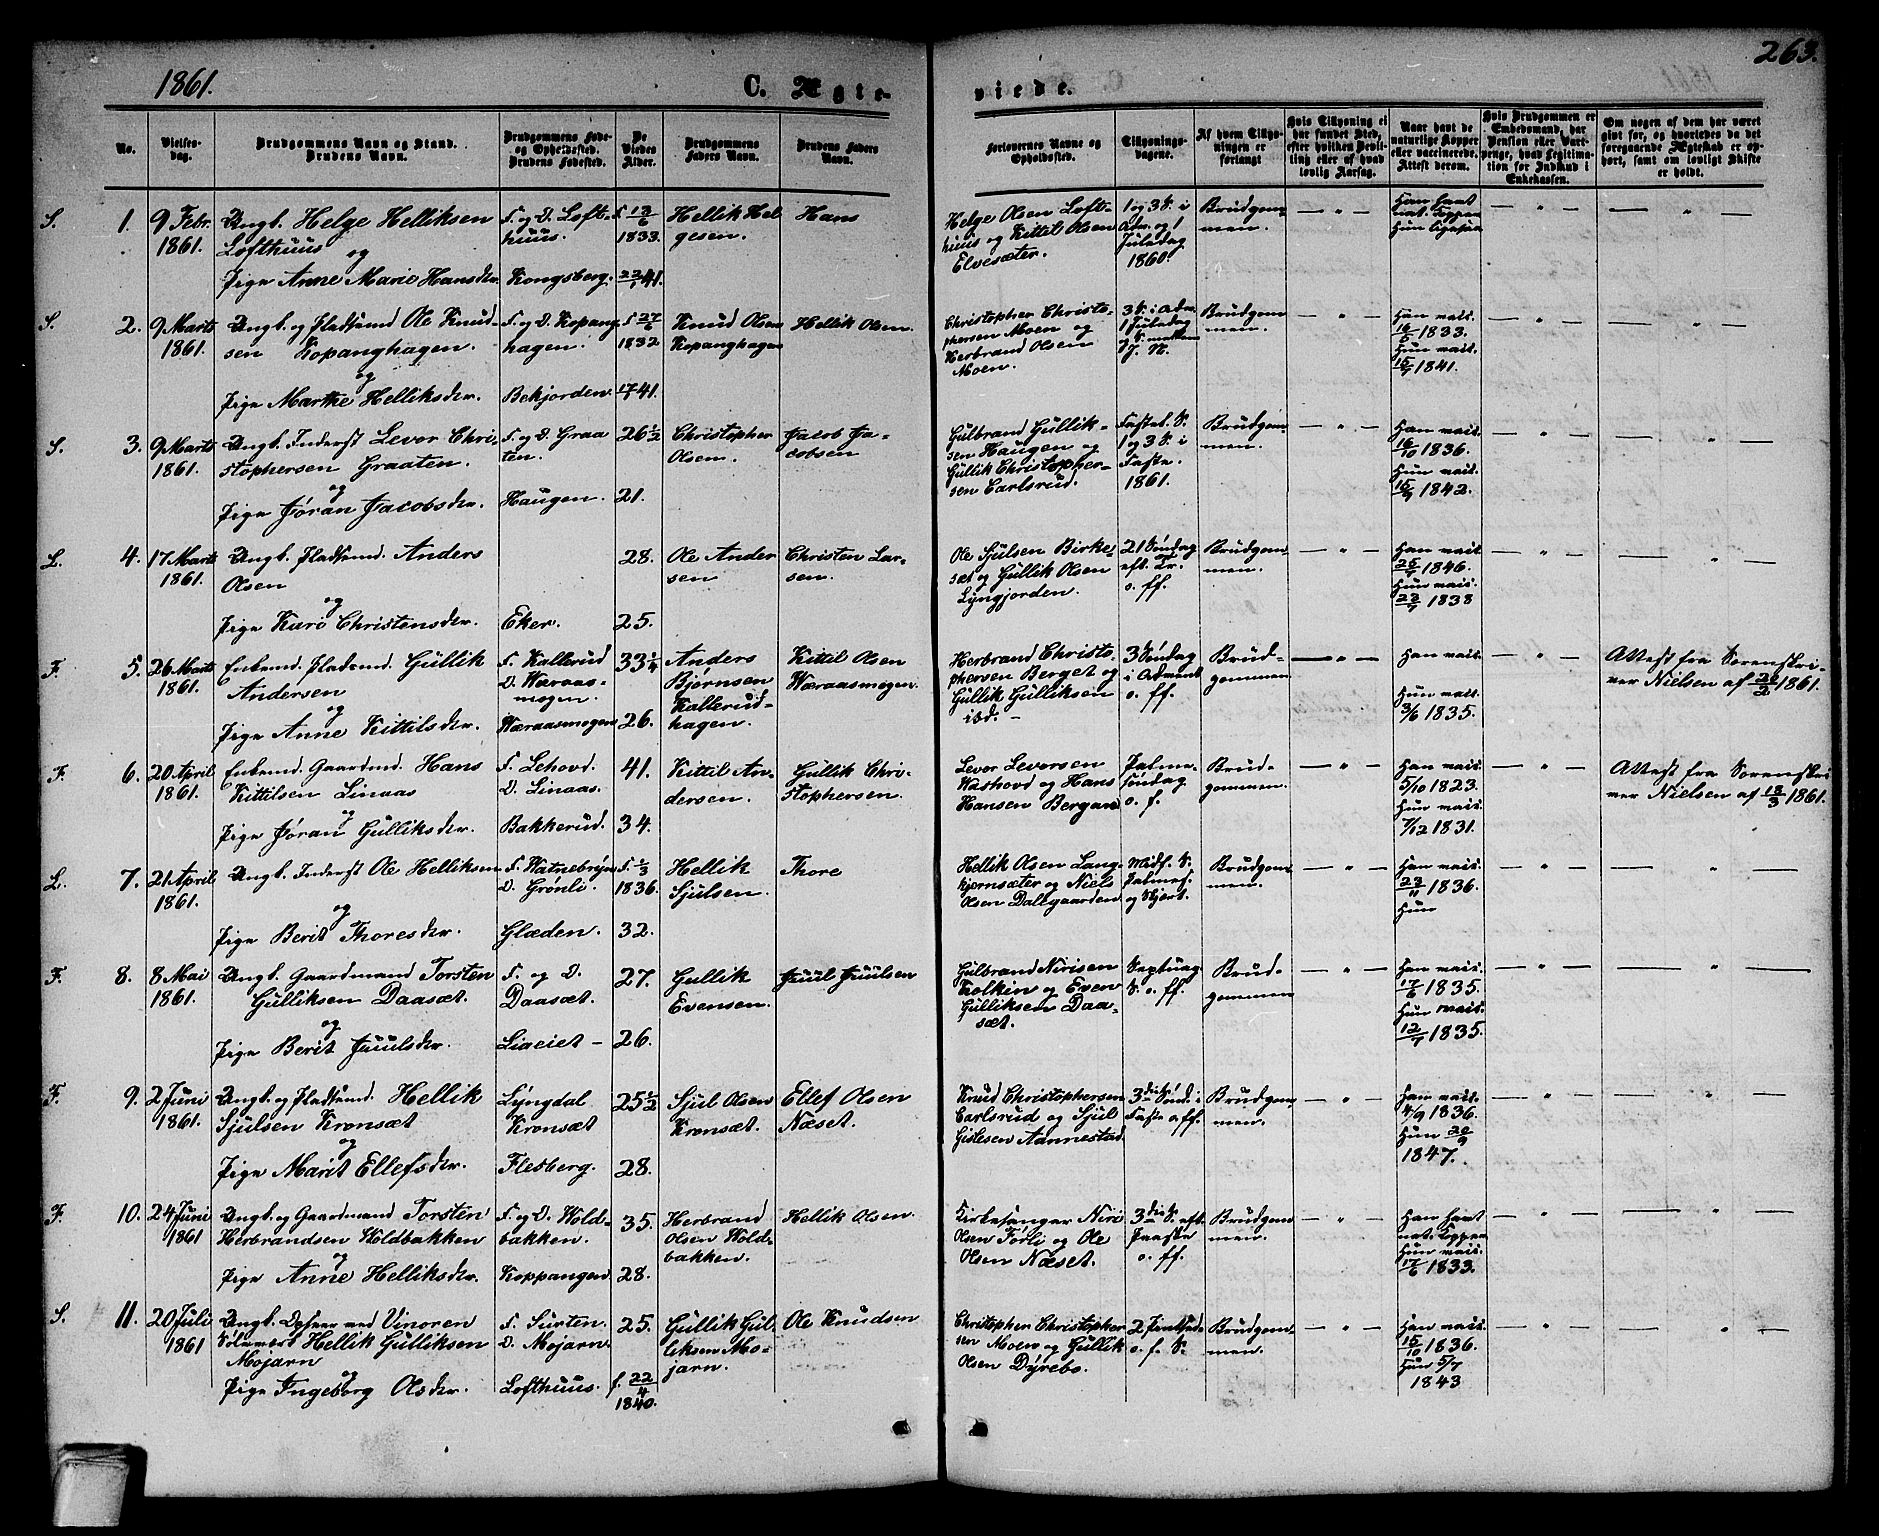 1861.
C. Ægte-
viede.
263.
No.
Vielses-
dag.
Brudgommens Navn og Stand.
Brudens Navn.
Brudgommens Føde-
og Opholdssted.
Brudens Fødested.
De
Viedes
Alder.
Brudgommens
Faders Navn.
Brudens Faders
Navn.
Forlovernes Navne og
Opholdssted.
Tillysnings-
dagene.
Af hvem Tillys-
ningen er
forlangt
Hvis Tillysning ei
har fundet Sted,
efter hvilken Bevil-
ling eller af hvad
lovlig Aarsag.
Naar havt de
naturlige Kopper
eller vaccinerede.
Attest derom.
Hvis Brudgommen er
Embedsmand, har
Pension eller Vart-
penge, hvad Legitima-
tion for Indskud i
Enkekassen.
Om nogen af dem har været
gift før, og hvorledes da det
foregaaende Ægteskab er op-
hørt, samt om lovligt Skifte
er holdt.
S. 1. 9 Febr. 1861.
Ungk. Helge Helliksen
Lofthuus
og
Pige Anne Marie Hansdr.
F. og D. Loft-
huus.
Kongsberg.
f 13/6
1833.
22/1 41.
Hellik Hel
gesen.
Hans
Helge Olsen Loft-
huus og Kittil Olsen
Elvesæter.
1 og 3 S. i
Adv. og 1
Juledag
1860.
Brudgom-
men.
— " —
Han havt
nat. Kopper
Hun ligesaa
— " —
— " —
S. 2. 9 Marts 1861.
Ungk. og Pladsmd Ole Knud-
sen Kopanghagen.
og
Pige Marthe Helliksdr.
F. og D. Kopang-
hagen.
Bekjorden.
f 27/6
1832
17/1 41.
Knud Olsen
Kopanghagen
Hellik Olsen.
Christopher Christo-
phersen Moen og
Herbrand Olsen
Moen.
3 S. i Adv.
1 Juledag
S. mellem
J. N.
Brudgom-
men.
— " —
Han vait.
16/5 1833.
Hun vait.
15/7 1841.
— " —
— " —
S. 3. 9 Marts 1861.
Ungk. Inderst Levor Chri-
stophersen Graaten.
og
Pige Jøran Jacobsdr.
F. og D. Graa
ten.
Haugen.
26 1/2
21.
Christopher
Olsen.
Jacob Ja-
cobsen
Gulbrand Gullik-
sen Haugen og
Gullik Christopher-
sen Carlsrud.
Fastel. S.
1 og 3 S. i
Faste.
1861.
Brudgom-
men.
— " —
Han vait.
16/10 1836.
Hun vait.
15/9 1842.
— " —
— " —
L. 4. 17 Marts 1861.
Ungk. Pladsmd. Anders
Olsen
og
Pige Kari Christensdr.
Eker.
28.
25.
Ole Ander
sen
Christen Lar-
sen.
Ole Sjulsen Birke-
sæt og Gullik Olsen
Lyngjorden.
21 Søndag
eft. Tr.
o. ff.
Brudgom-
men.
— " —
Han vait
25/7 1846.
Hun vait.
22/7 1838
— " —
— " —
F. 5. 26 Marts 1861.
Enkemd. Pladsmd. Gullik
Andersen
og
Pige Anne Kittilsdr.
F. Kallerud
D. Wæraas-
mogen.
Wæraasmogen
33 1/4
26.
Anders
Bjørnsen
Kallerud-
hagen.
Kittil Olsen
Wæraasmogen.
Herbrand Christo-
phersen Berget og
Gullik Gulliksen
ibd. -
3 Søndag
i Advent
o. ff.
Brud-
gommen.
— " —
Han vait.
Hun vait.
3/6 1835.
— " —
Attest fra Sorenskri-
ver Nielsen af 20/2 1861.
F. 6. 20 April 1861.
Enkemd. Gaardmd. Hans
Kittilsen Linaas
og
Pige Jøran Gulliksdr.
F. Lehovd.
D. Linaas.
Bakkerud.
41.
34.
Kittil An-
dersen.
Gullik Chri-
stophersen.
Levor Leversen
Washovd og Hans
Hansen Bergan
Palme-
søndag
o. f.
Brud-
gommen.
— " —
Han vait.
5/10 1823.
Hun vait.
7/12 1831.
— " —
Attest fra Sorenskri
ver Nielsen af 18/3 1861.
L. 7. 21 April 1861.
Ungk. Inderst Ole Helliksen
og
Pige Berit Thoresdr.
F. Watnebryn
D. Grønli.
Glæden.
f 1/3
1836.
32.
Hellik
Sjulsen.
Thore
Hellik Olsen Lang-
kjernsæter og Niels
Olsen Dalsgaarden
Midf. S.
Palmes.
og Skjert.
Brudgom-
men.
— " —
Han vait.
23/11 1836.
Hun
— " —
— " —
F. 8. 8 Mai 1861.
Ungk. Gaardmand Torsten
Gulliksen Daasæt.
og
Pige Berit Juulsdr.
F. og D.
Daasæt.
Liaeiet -
27.
26.
Gullik
Evensen.
Juul Juulsen
Gulbrand Nirisen
Kolkin og Even
Gulliksen Daa-
sæt.
Septuag.
S. o. ff.
Brud-
gommen
— " —
Han vait.
17/6 1835.
Hun vait.
12/7 1835.
— " —
— " —
F. 9. 2 Juni 1861.
Ungk. og Pladsmd. Hellik
Sjulsen Kronsæt
og
Pige Marit Ellefsdr.
Lyngdal
Kronsæt
Flesberg.
25 1/2
28.
Sjul Olsen
Kronsæt.
Ellef Olsen
Næset.
Knud Christophersen
Carlsrud og Sjul
Gislesen Aannestad.
3die Sønd. i
Faste o. ff.
Brudgom-
men.
— " —
Han vait.
4/9 1836.
Hun 20/9
1847.
— " —
— " —
F. 10. 24 Juni 1861
Ungk. og Gaardmand Torsten
Herbrandsen Woldbakken
og
Pige Anne Helliksdr.
F. og D. Wold-
bakken.
Koppangen.
35.
28.
Herbrand
Olsen Wold-
bakken.
Hellik Olsen.
Kirkesanger Niri
Olsen Førli og Ole
Olsen Næset.
3die S. eft.
Paaske
o. ff.
Brudgom-
men.
— " —
Han havt
nat. Kopper
Hun vait.
17/6 1833.
— " —
— " —
S. 11. 20 Juli 1861
Ungk. Opseer ved Vinoren
Sølvværk Hellik Gulliksen
Mojarn
og
Pige Ingeborg Olsdr.
F. Surten.
D. Mojarn.
Lofthuus.
25.
f. 22/4
1840.
Gullik Gul
liksen Mo-
jarn.
Ole Knudsen
Christopher Christopher
sen Moen og Gullik
Olsen Dyrebo.
2 Pintsed.
o. f. S.
Brudgom-
men.
— " —
Han vait.
15/10 1836.
Hun 5/7
1843
— " —
— " —